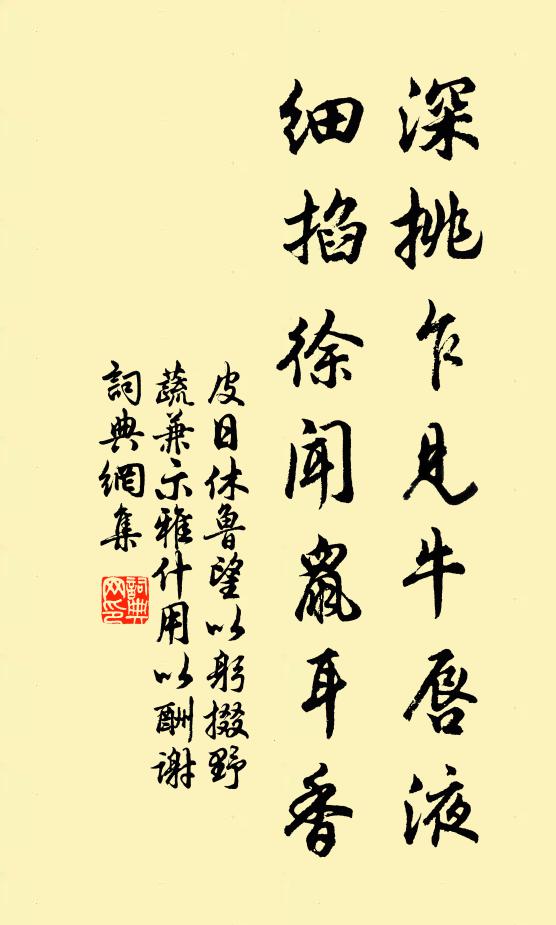 深挑乍見牛唇液
細掐徐聞鼠耳香
皮日休魯望以躬掇野
蔬兼示雅什用以酬謝
詞典網集
詞典網印